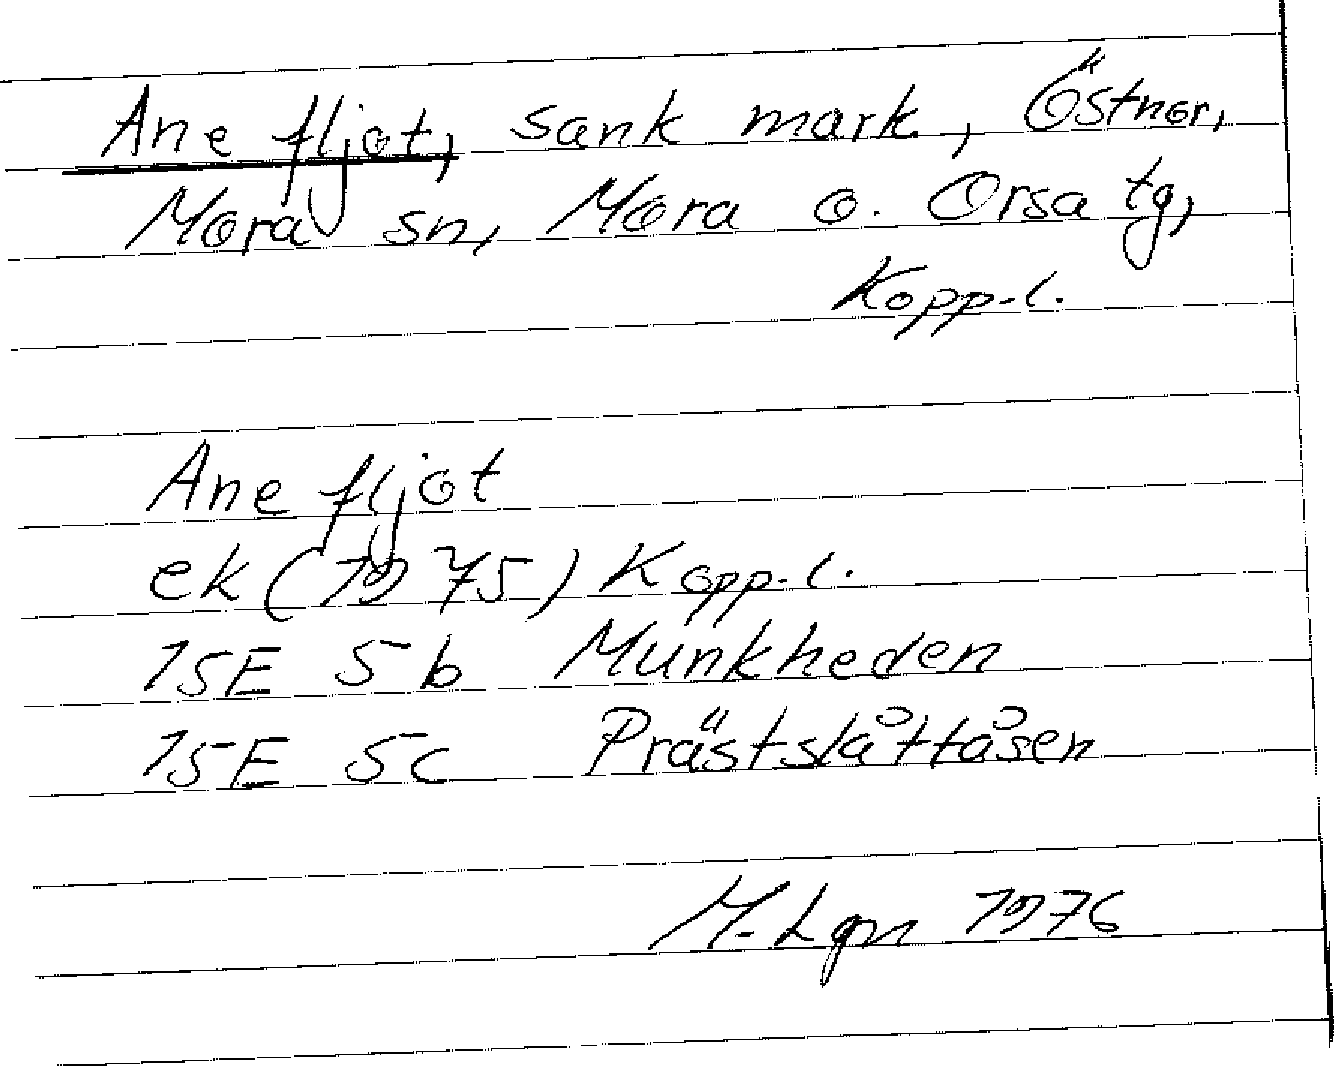 Ane fljot, sank mark, Östnor,
Mora sn, Mora o. Orsa tg,
Kopp.l.
Ane fljot
ek (1975) Kopp.l.
15E 5b Munkheden
15E 5c Prästslåttåsen
M. Lgn 1976